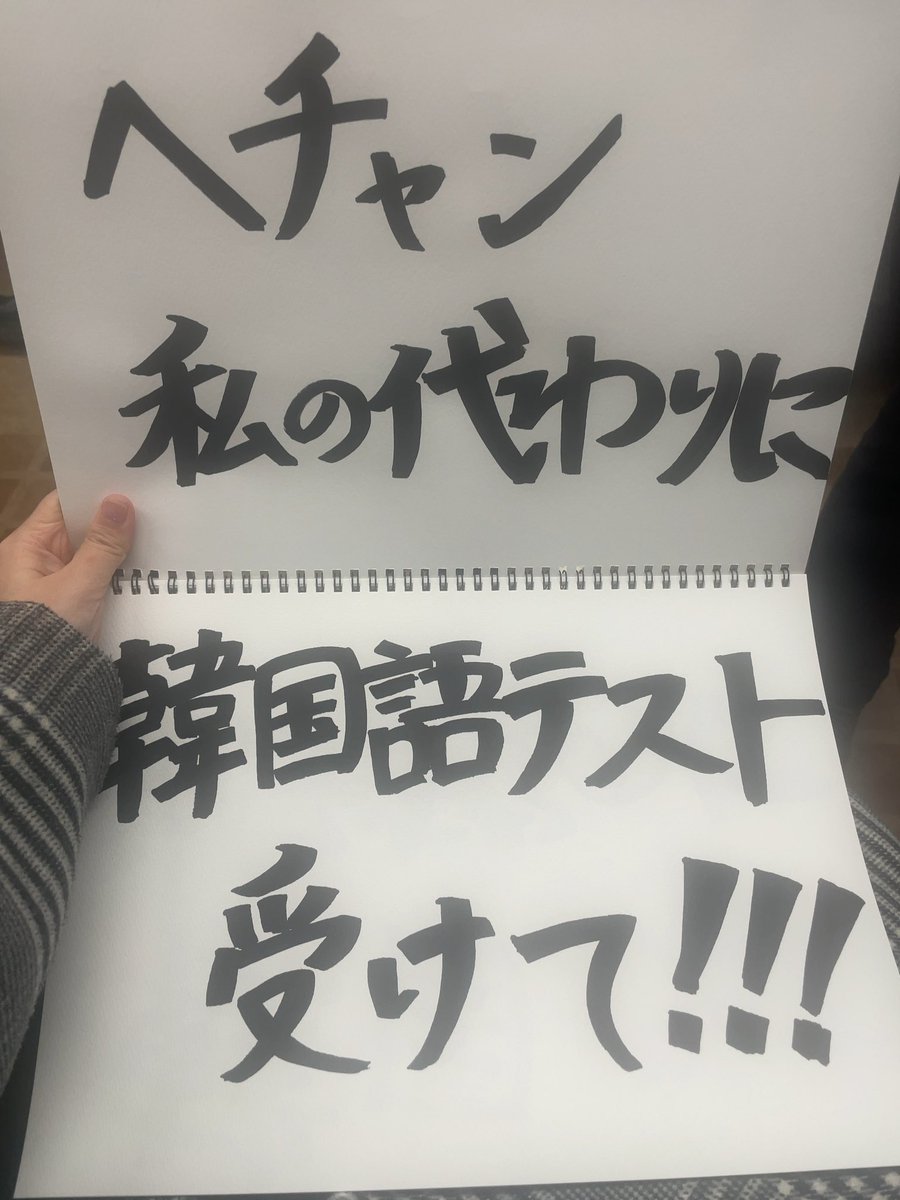 ヘチャン
私の代わりに
韓国語テスト
受けて!!!